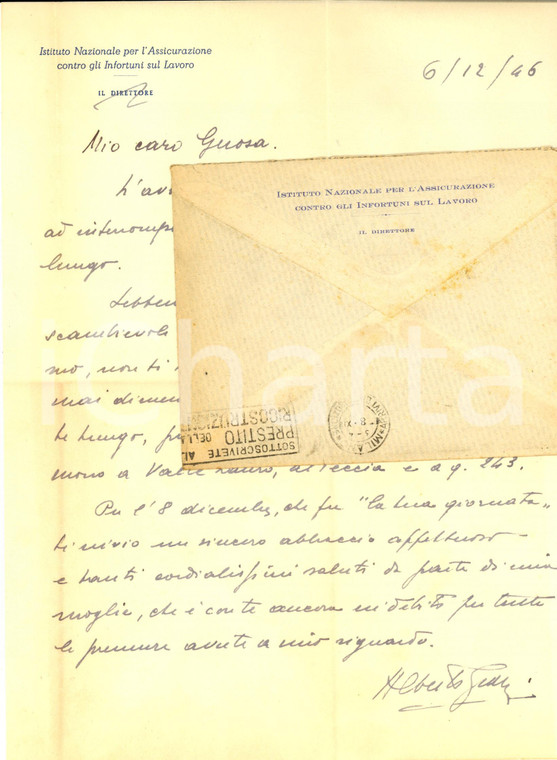 Istituto Nazionale per l'Assicurazione
contro gli Infortuni sul Lavoro
IL DIRETTORE
6/12/46
Mio caro Guosa.
L'av
ad interromp
lungo.
Sebben
scambievoli
mo, non ti
mai dimen
te lungo,
mono a Valle e a q. 243.
Per l'8 dicembre, che fu "la tua giornata"
ti invio un sincero abbraccio affettuoso
e tanti cordialissimi saluti da parte di mia
moglie, che è con te ancora in debito per tutte
le premure avute a mio riguardo.
Alberto
ISTITUTO NAZIONALE PER L'ASSICURAZIONE
CONTRO GLI INFORTUNI SUL LAVORO
IL DIRETTORE
SOTTOSCRIVETE AL
PRESTITO
DELLA
RICOSTRUZIONE
iCharta